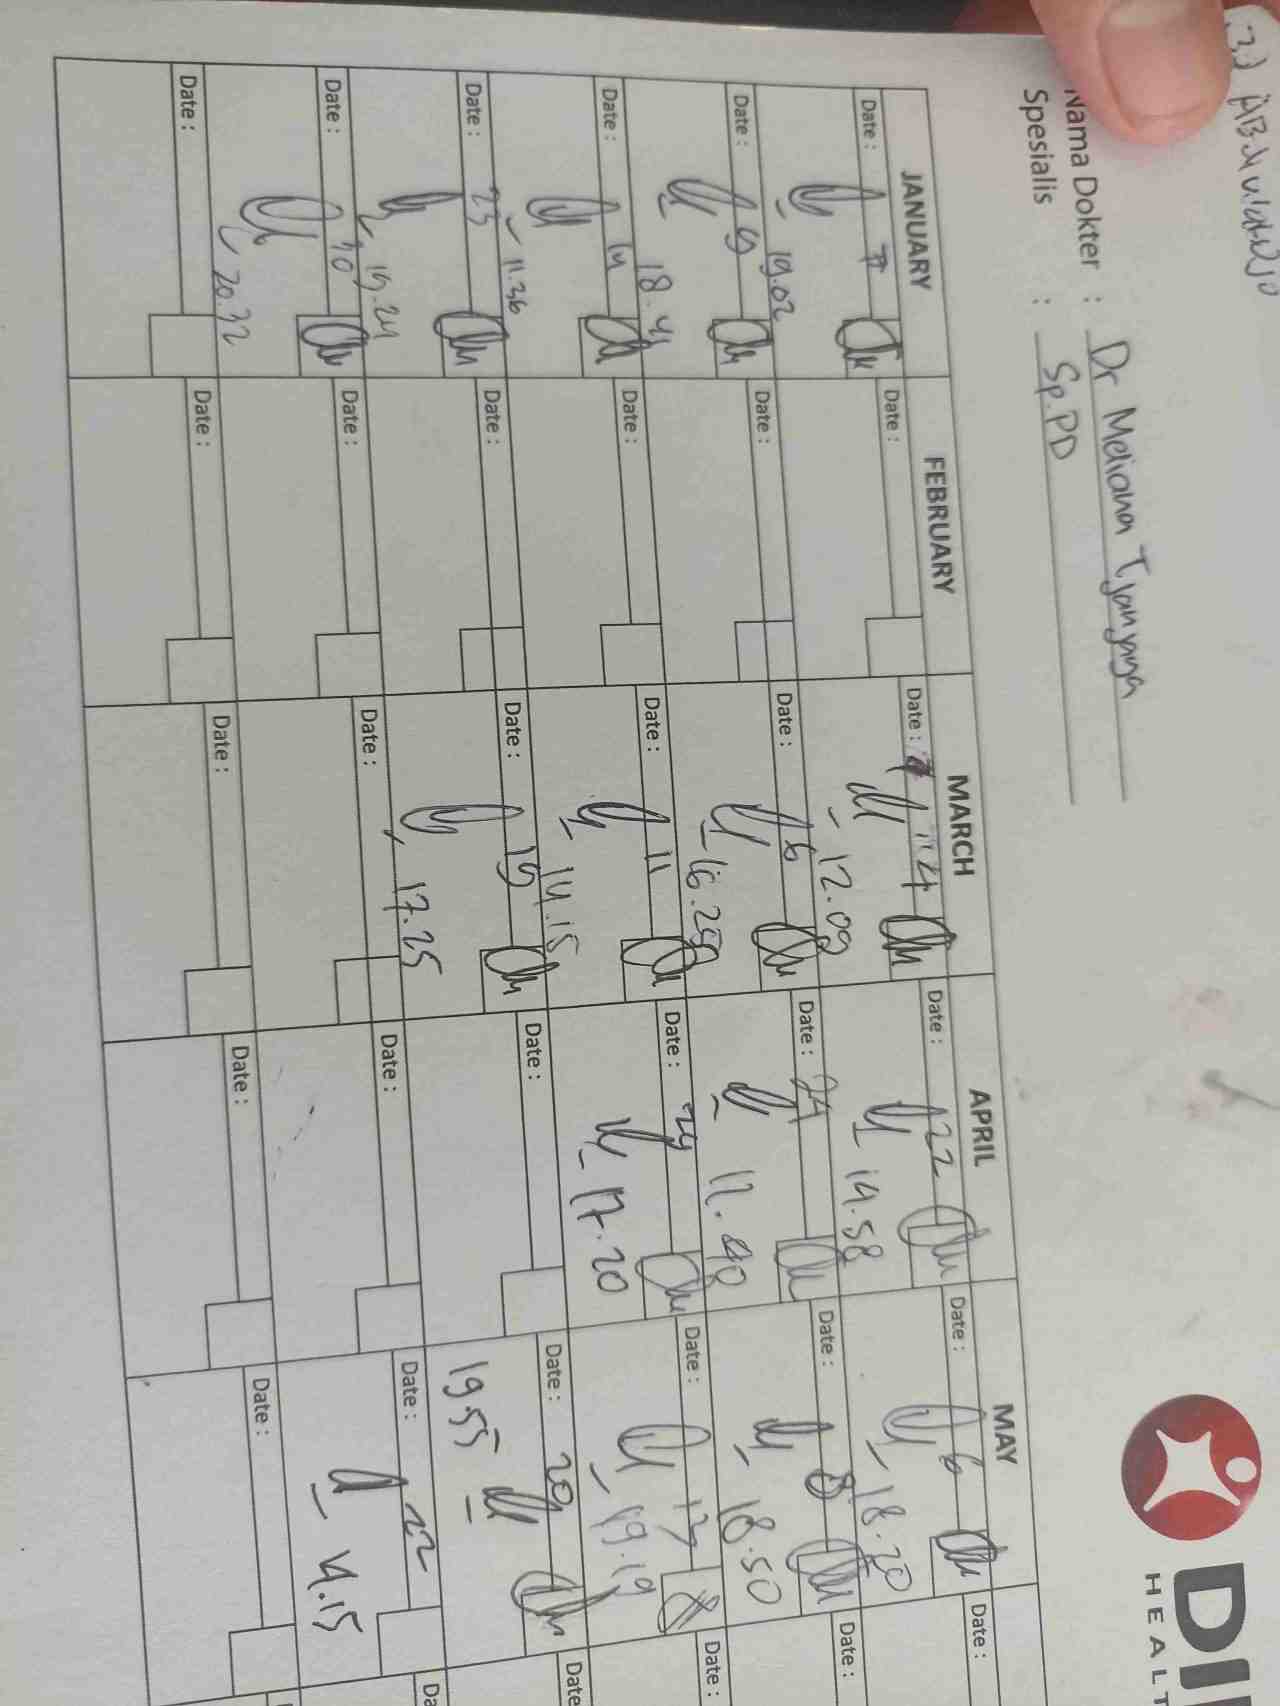 Nama Dokter : Dr Meliana Tjanyaya
Spesialis : Sp.PD
DI
HEALT
JANUARY FEBRUARY MARCH APRIL MAY
Date : 7 Date : Date : 4 Date : 22 Date : 6 Date :
19.02 12.09 14.58 18.20
Date : 9 Date : Date : 6 Date : 24 Date : 8 Date :
18.41 16.25
18.50
Date : 14 Date : Date : 11 Date : 29 Date : 13 Date :
11.36 14.15 17.20 19.19
Date : 23 Date : Date : 19 Date : Date : 20 Date
19.24 17.25 19.55
Date : 30 Date : Date : Date : Date : 22 Da
20.32
Date : Date : Date : Date : Date :